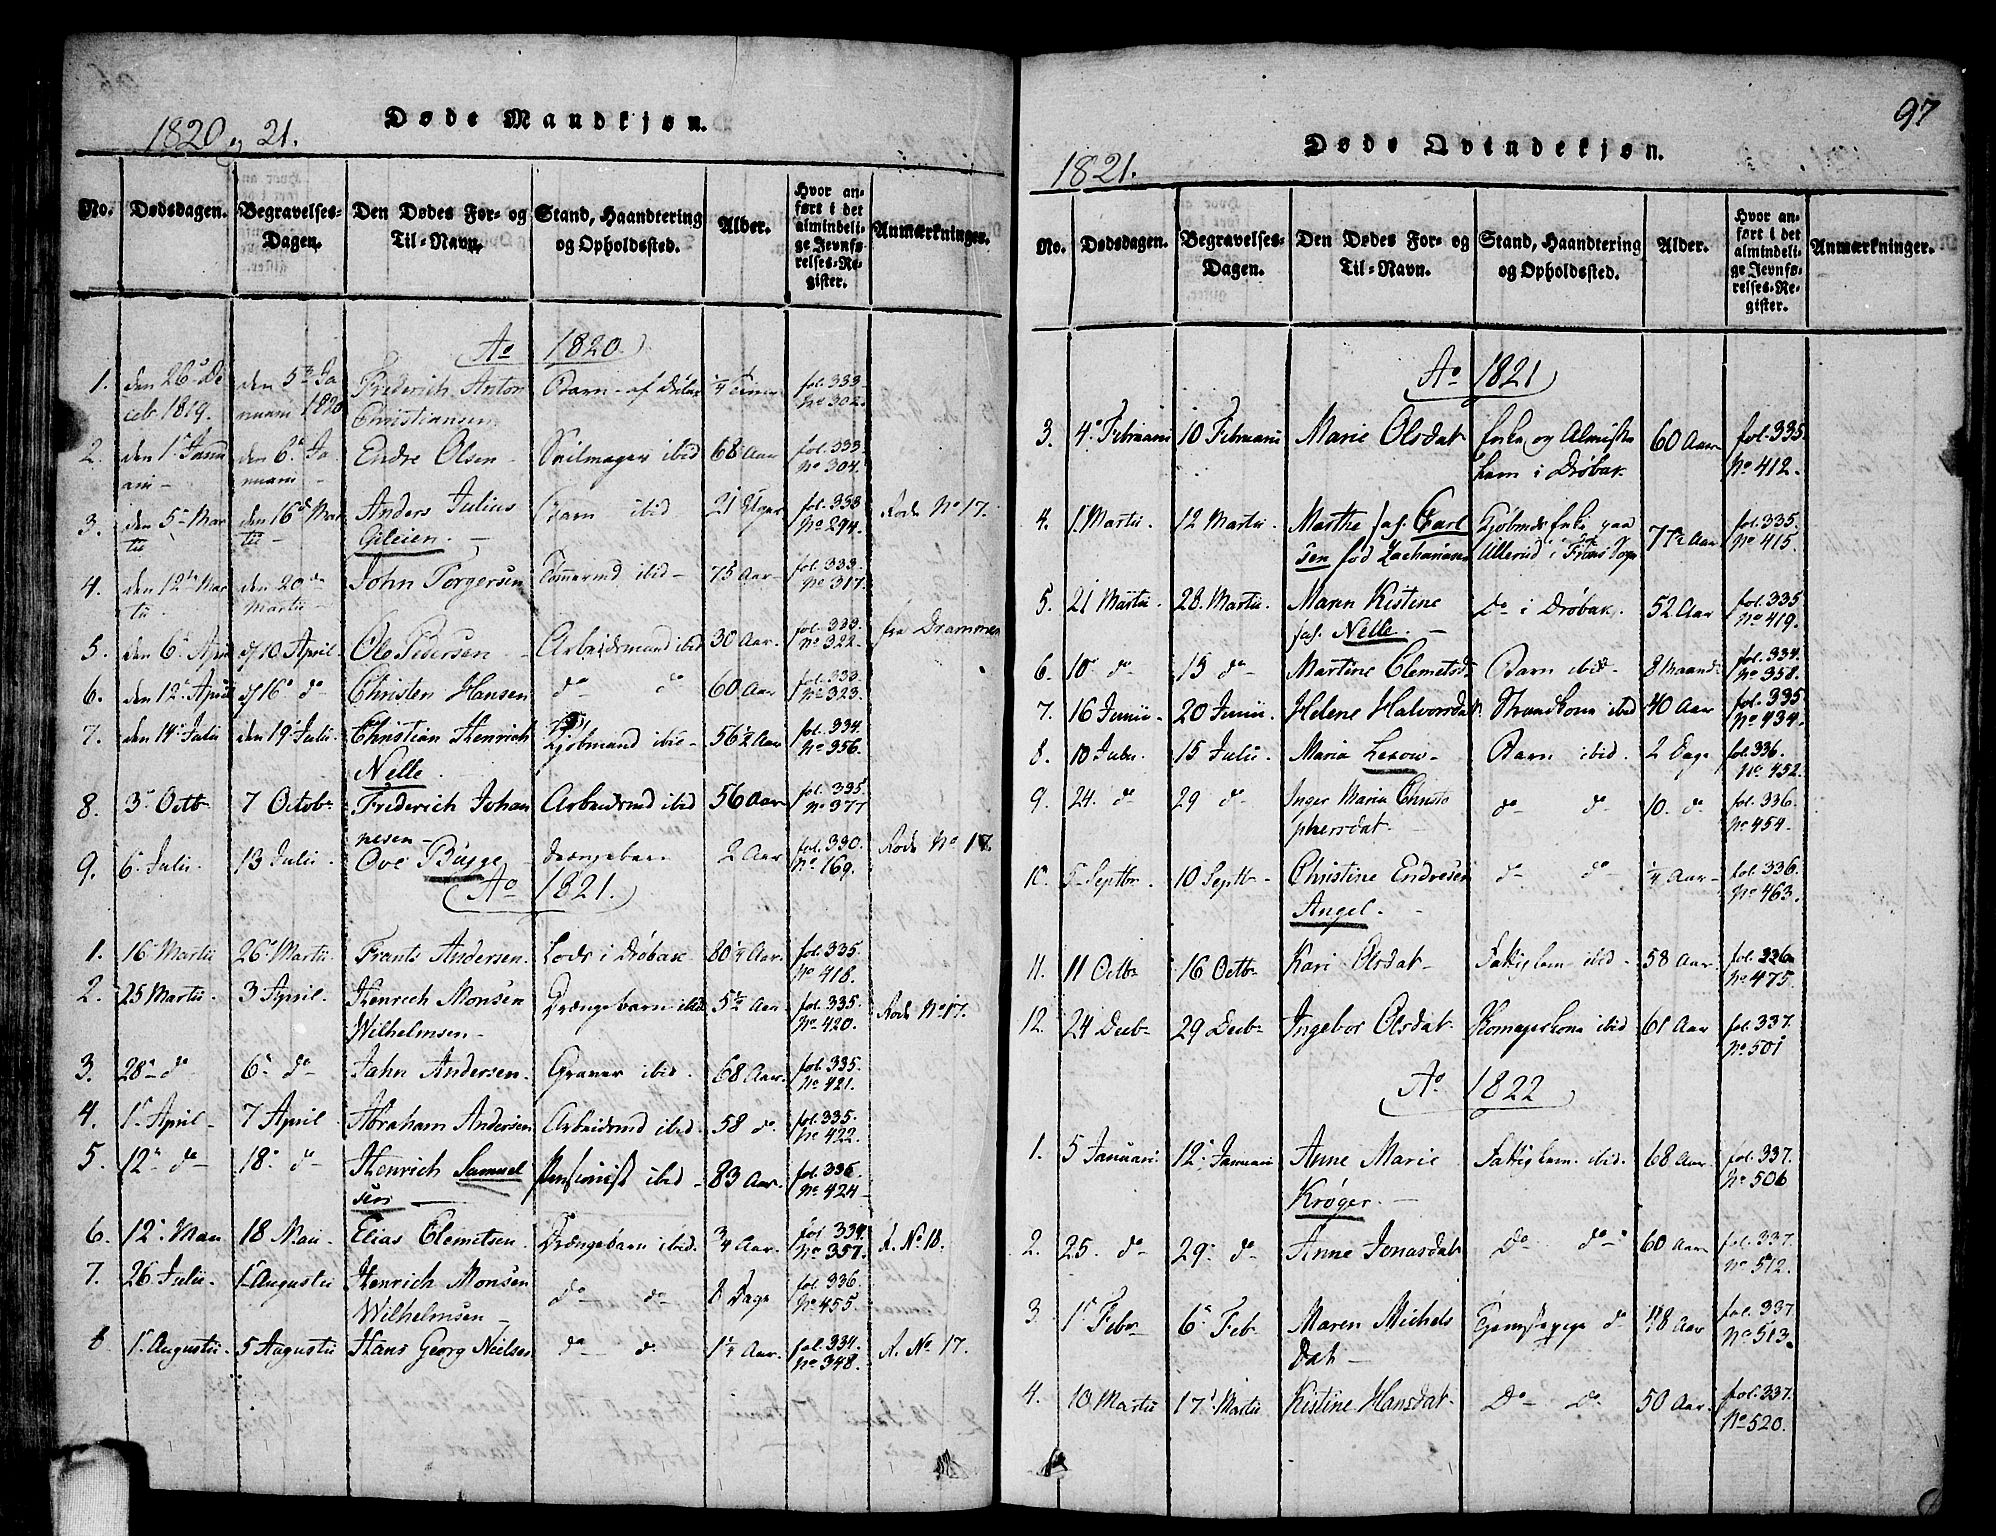 Døde Mandkjøn.
1820 og 21.
No. Dødsdagen. Begravelses-Dagen. Den Dødes For- og Til-Navn. Stand, Haandtering og Opholdssted. Alder. Hvor anført i det almindelige Jevnførelses-Register. Anmærkninger.
Ao 1820.
1. den 26 De den 5 Ja Frederich Anton Barn af Drøbak 1/4 fol. 333.
cebr 1819. nuarii 1820 Christiansen No 302.
2. den 1 Janu den 6 Ja Endre Olsen Seilmager ibid 68 Aar fol. 333.
arii nuarii No 304.
3. den 5 Mar den 16 Mar Anders Julius Barn ibid 21 Uger fol. 333 Rode No 17.
tii tii Gleien. No 294.
4. den 12 Mar den 20 John Torgersen ibid 75 Aar fol. 333.
tii Martii No 317.
5. den 6 April d 10 April Ole Pedersen Arbeidsmand ibid 30 Aar fol. 333. fra Drammen
No 322.
6. den 12 April d 16 do Christen Hansen do do 60 Aar fol. 333.
No 323.
7. den 14 Julii den 19 Julii Christian Henrich Kjøbmand ibid 56 1/2 Aar fol. 334.
Nelle No 356.
8. 3 Octb 7 Octob Friderich Johan Arbeidsmd ibid 56 Aar fol. 335.
nesen No 377
9. 6 Julii. 13 Julii Ove Bugge Drengebarn 2 Aar fol. 330. Rode No 17.
No 169.
Ao 1821.
1. 16 Martii 26 Martii Frants Andersen. Lods i Drøbak 80 1/4 Aar. fol. 335.
No 418.
2. 25 Martii. 3 April. Henrich Monsen Drængebarn ibid 5 1/2 Aar fol. 335. Rode No 17.
Wilhelmsen No 420.
3. 28 do 6 do Jahn Andersen. Graver ibid. 68 Aar. fol. 335.
No 421.
4. 1 April 7 April Abraham Andersen Arbeidsmd ibid. 58 do. fol. 335.
No 422.
5. 12 do 18 do Henrich Samuel Pensionist ibid 83 Aar. fol. 336.
sen No 424
6. 12 Maii 18 Maii Elias Clemetsen. Drængebarn ibid. 3/4 Aar. fol 334. R. No 18.
No 357.
7. 26 Julii 1 Augustii Henrich Monsen do do 8 Dage fol. 336.
Wilhelmsen No 455.
8 1 Augustii. 5 Augustii Hans Georg Nielsen do do. 1 1/4 Aar. fol. 334. R. No 17.
No 348.
97
Døde Qvindekjøn.
1821.
No. Dødsdagen. Begravelses-Dagen. Den Dødes For- og Til-Navn. Stand, Haandtering og Opholdssted. Alder. Hvor anført i det almindelige Jevnførelses-Register. Anmærkninger.
Ao 1821
3. 4 Februarii 10 Februarii Marie Olsdat Enke og Almisse 60 Aar fol. 335.
lem i Drøbak No 412.
4. 1 Martii. 12 Martii Marthe sal. Carl Kjøbmds Enke paa 77 1/2 Aar fol. 335.
sen fød Zachariasen Ullerud i No 415.
5. 21 Martii. 28. Martii. Maren Kistine Do i Drøbak. 52 Aar fol. 335
sal. Nelle. No 419.
6. 10 do 15 do Martine Clemetsd Barn ibid 8 Maand fol. 334.
No 358.
7. 16 Junii 20 Junii Helene Halvorsdat. Strandkone ibid 40 Aar fol. 335
No 434.
8. 10 Julii 15 Julii Maria Lexow Barn ibid. 2 Dage fol. 336.
No 452.
9. 24. do 29 do Inger Maria Christo do do 10. do fol. 336.
phersdat No 454.
10. 5 Septbr. 10 Septbr Christine Endresen do do 1/4 Aar fol. 336.
Angel. No 463.
11. 11 Octb 16 Octb Kari Olsdat Fattiglem ibid. 58 Aar. fol. 336
No 475.
12. 24 Decb 29 Decb Ingebor Olsdat Skomagerkone ibid 61 Aar fol. 337.
No 501
Ao 1822
1. 5 Januari. 12 Januari Anne Marie Fattiglem. ibid. 68 Aar. fol. 337.
Krøger. No 506
2. 25. do 29 do Anne Jonasdat Do do 60 Aar fol. 337.
No 512.
3. 1 Febr 6 Feb Maren Michels Tjenestepige do 48 Aar fol. 337
Dat No 513.
4. 10 Martii 17 Martii Kistine Hansdat Do do 50 Aar. fol. 337.
No 520.